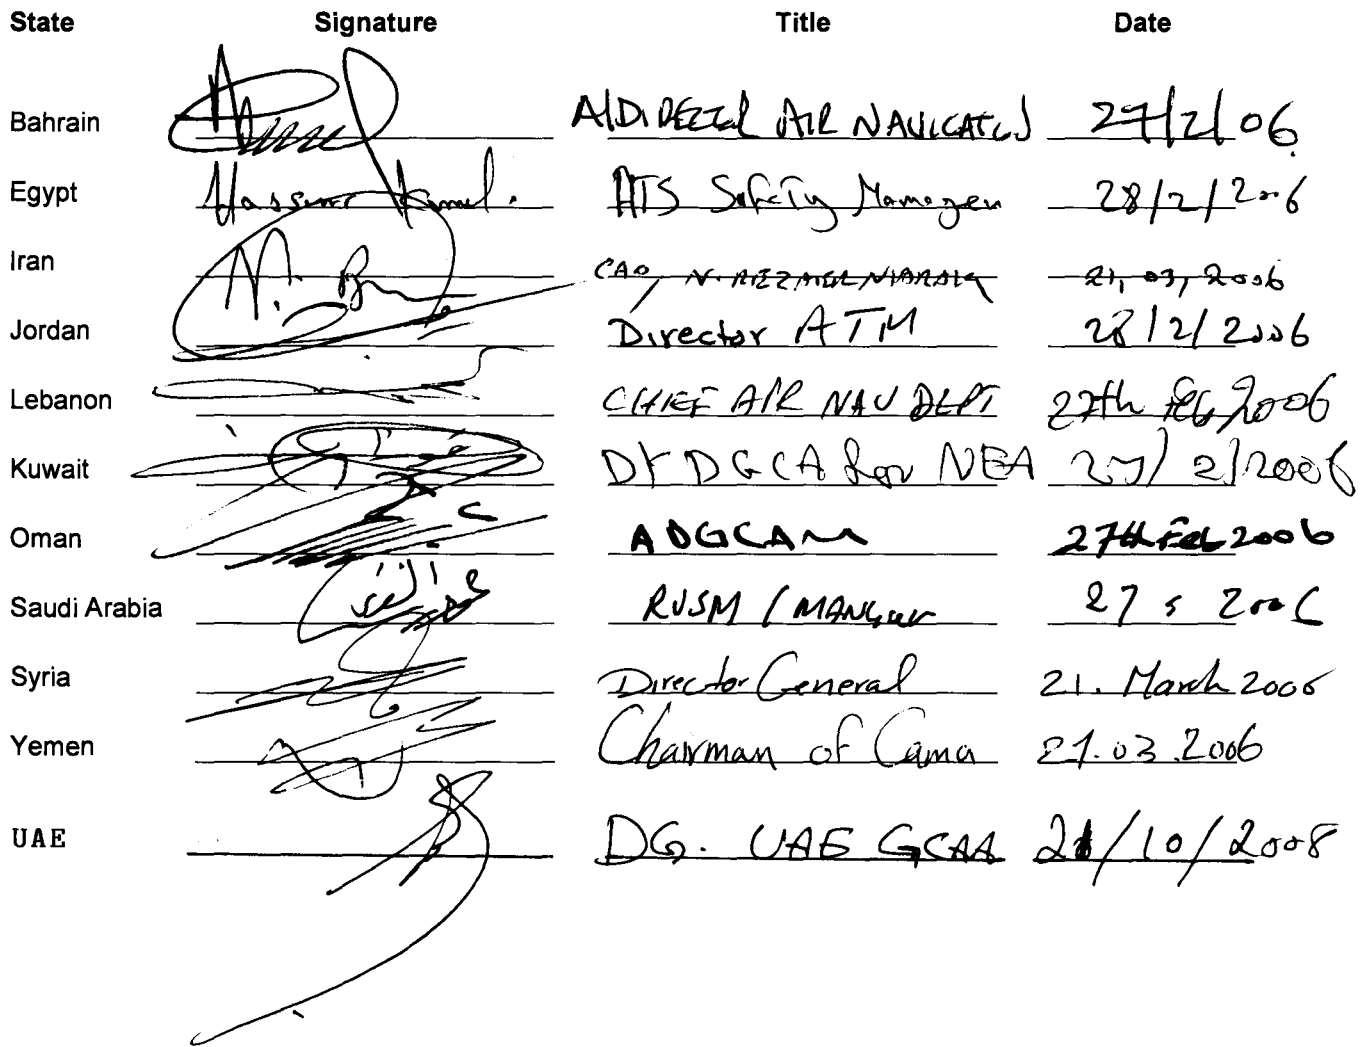 State Signature Title Date
Bahrain A/DIRECTOR AIR NAVIGATION 27/2/06
Egypt Hassan Kamel. ATS Safety Manager 28/2/2006
Iran CAO, 21,03,2006
Jordan Director ATM 28/2/2006
Lebanon CHIEF AIR NAV DEPT 27th Feb 2006
Kuwait DY DGCA for NEA 27/2/2006
Oman ADGCAM 27th Feb 2006
Saudi Arabia RVSM / MANAGER 27 2006
Syria Director General 21. March 2006
Yemen Chairman of Cama 21.03.2006
UAE DG. UAE GCAA 21/10/2008